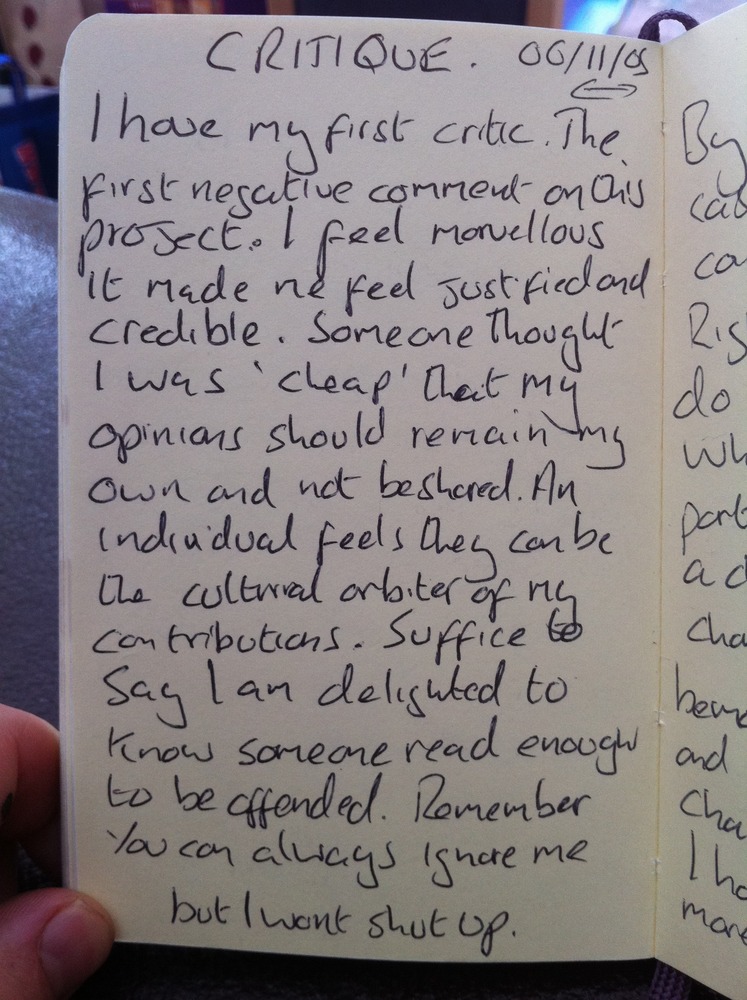 CRITIQUE. 06/11/09
I have my first critic. The
first negative comment on this
project. I feel marvellous
It made me feel justified and
credible. Someone thought
I was 'cheap' that my
opinions should remain my
own and not be shared. An
individual feels they can be
the cultural arbiter of my
contributions. Suffice to
say I am delighted to
know someone read enough
to be offended. Remember
You can always ignore me
but I wont shut up.
By
ca
Rig
do
wh
part
a d
cha
and
cha
I ha
more